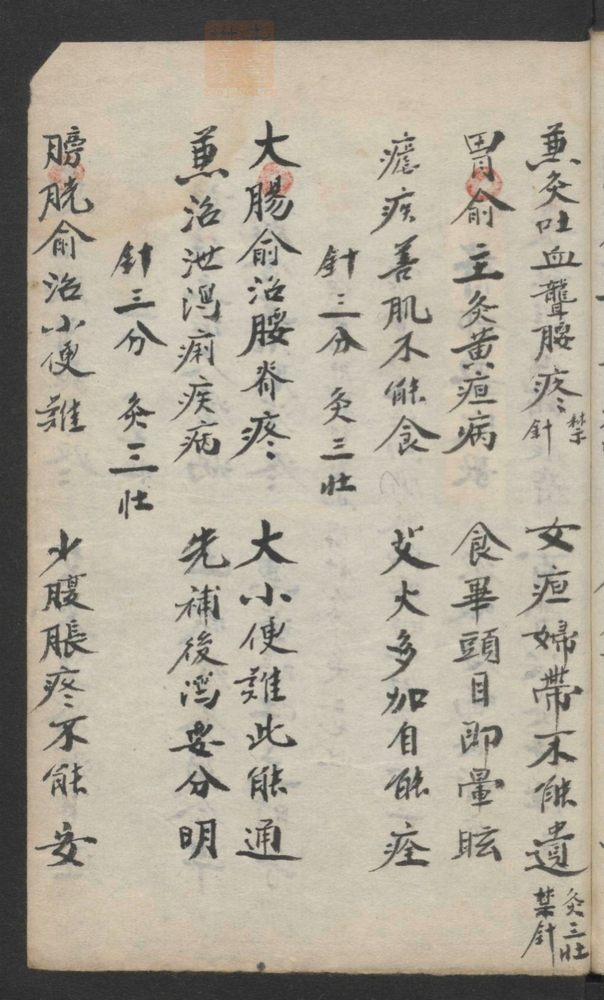 兼灸吐血聾腰疼 禁針 女疸婦帶不能遺 灸三壯禁針
胃俞主灸黃疸病 食畢頭目即暈眩
瘧疾善肌不能食 艾火多加自能痊
針三分 灸三壯
大腸俞治腰脊疼 大小便難此能通
兼治泄瀉痢疾病 先補後瀉要分明
針三分 灸三壯
膀胱俞治小便難 少腹脹疼不能安